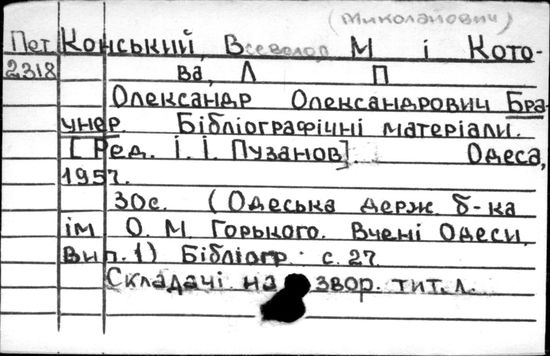 (Миколайович)
Пет Конський, Всеволод М і Кото-
2318 ва, Л П
Олександр Олександрович Бра
унер. Бібліографічні матеріали.
[Ред. І. І. Пузанов]. Одеса,
1957.
30с. (Одеська держ. б-ка
ім О. М. Горького. Вчені Одеси.
Вип. 1) Бібліогр: с. 27
Складачі на звор. тит. л.